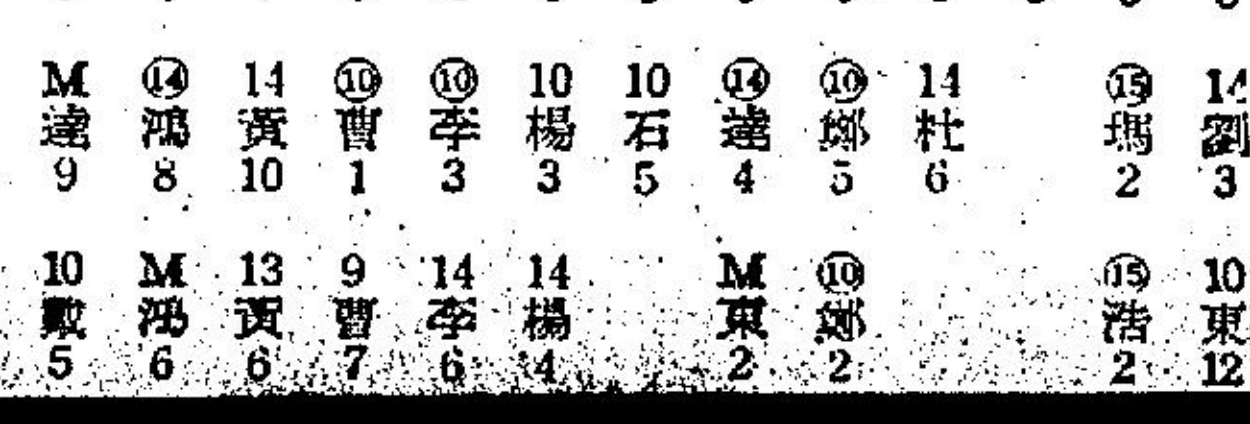 M ⑭ 14 ⑩ ⑩ 10 10 ⑭ ⑩ 14 ⑮ 14
達 鴻 黃 曹 李 楊 石 達 鄭 杜 瑪 劉
9 8 10 1 3 3 5 4 5 6 2 3
10 M 13 9 14 14 M ⑩ ⑮ 10
戴 鴻 黃 曹 李 楊 東 鄭 浩 東
5 6 6 7 6 4 2 2 2 12